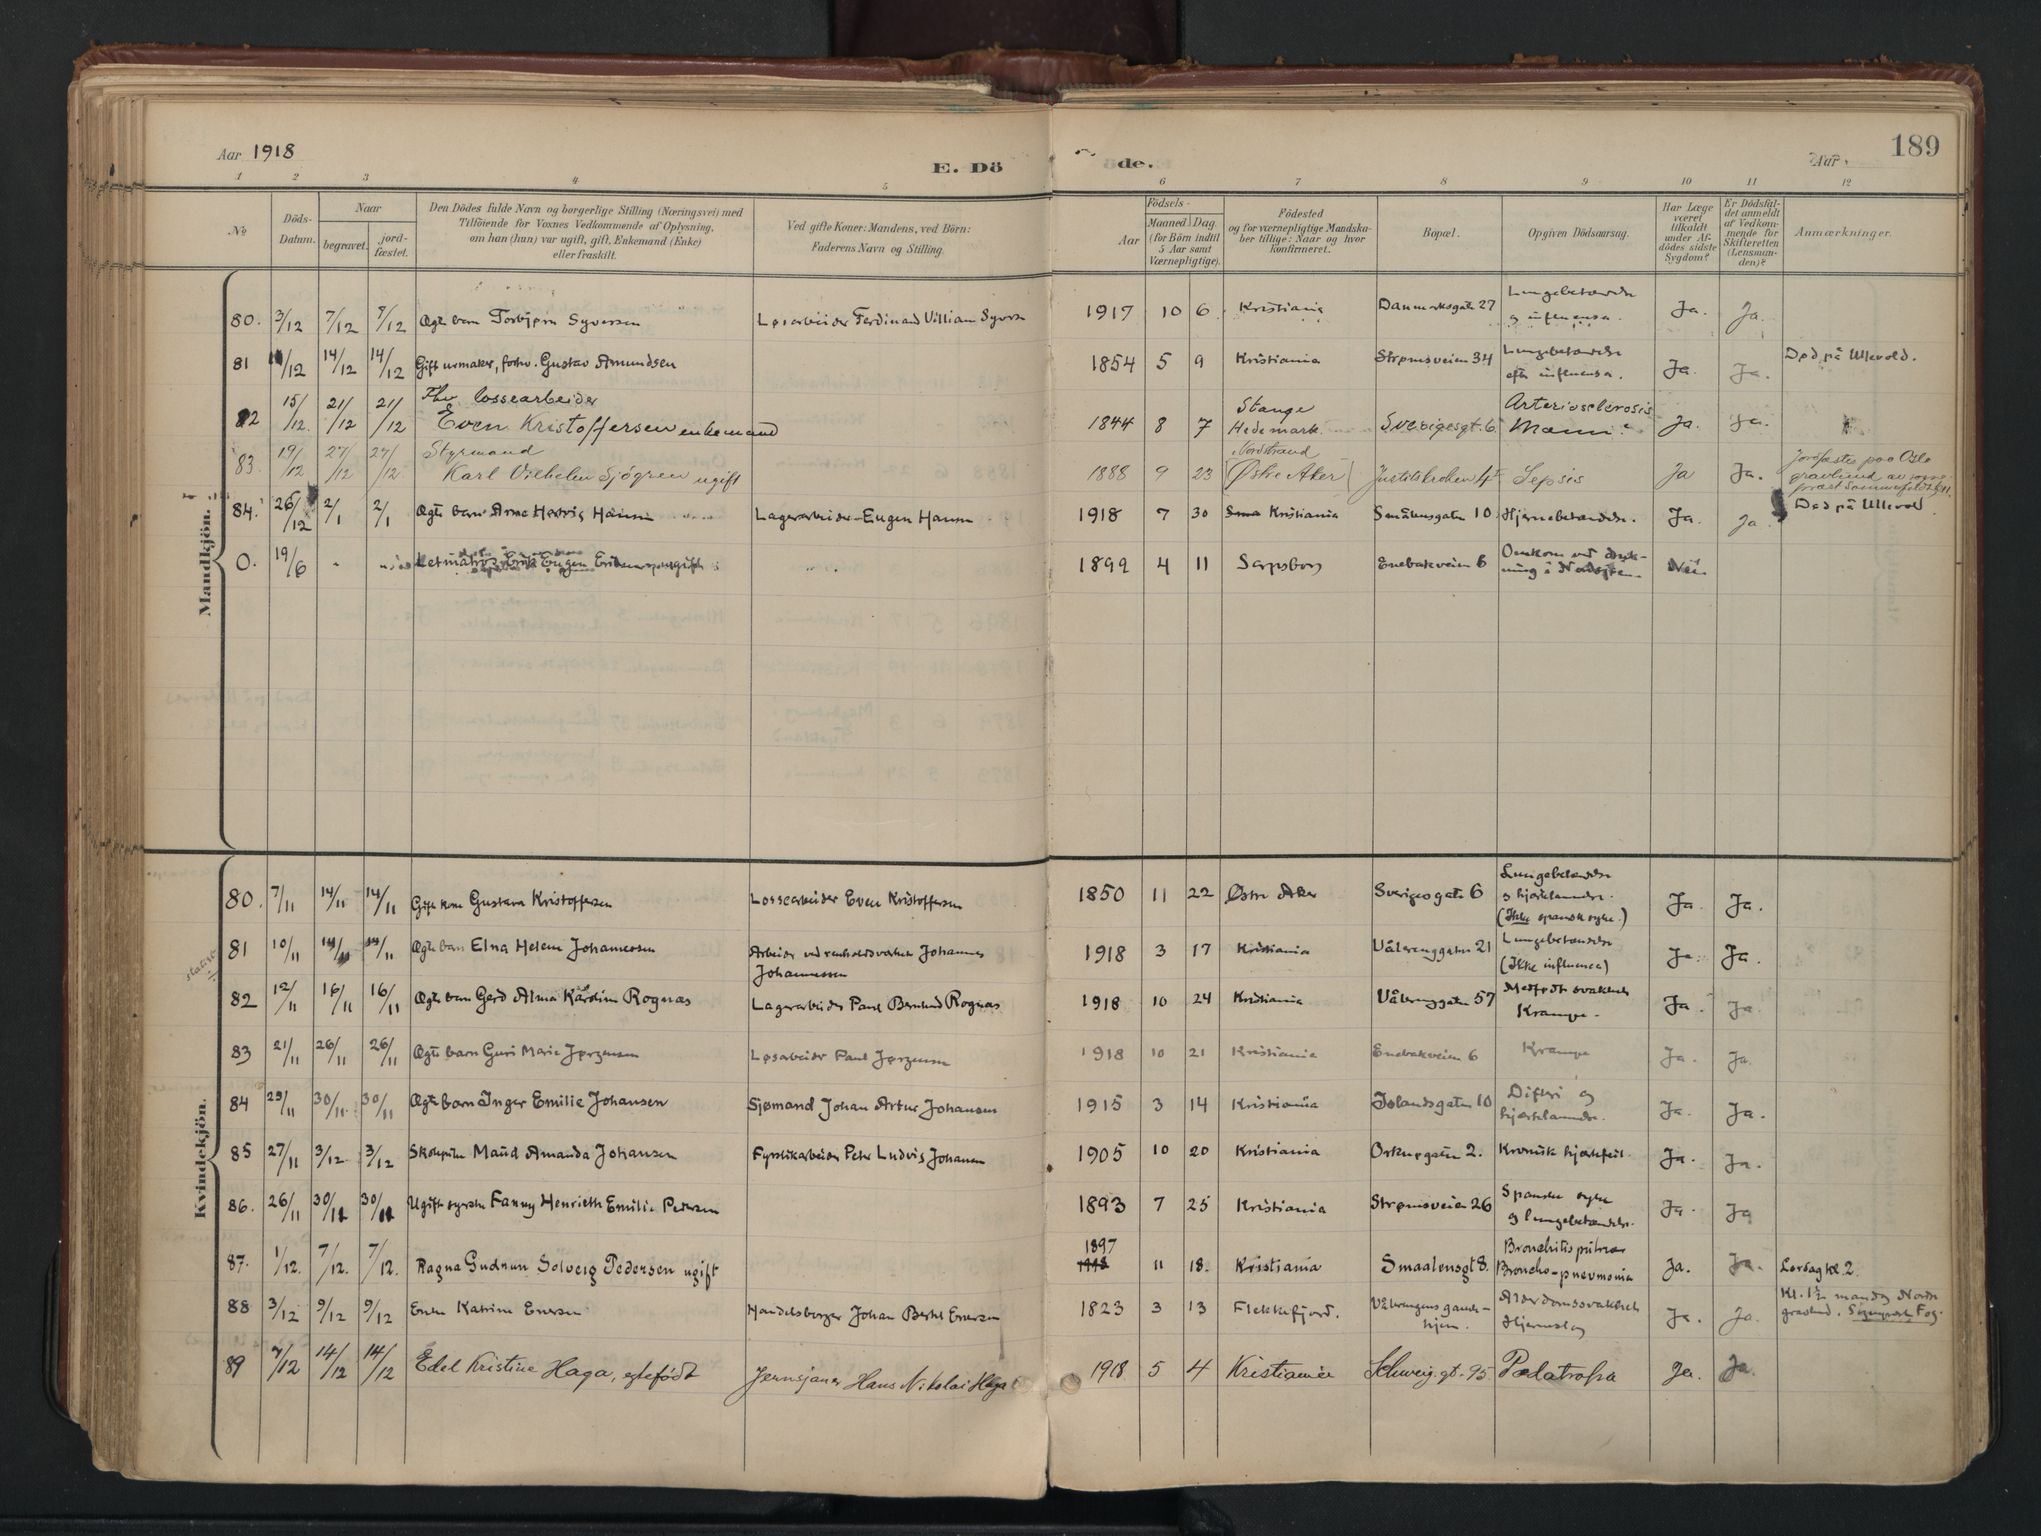 Aar 1918
E. Døde.
Aar
189
1 2 3 4 5 6 7 8 9 10 11 12
No
Døds-Datum.
Naar
begravet.
jord-fæstet.
Den Dödes fulde Navn og borgerlige Stilling (Næringsvei) med
Tilföiende for Voxnes Vedkommende af Oplysning,
om han (hun) var ugift, gift, Enkemand (Enke)
eller fraskilt.
Ved gifte Koner: Mandens, ved Börn:
Faderens Navn og Stilling.
Födsels-
Aar
Maaned
Dag
(for Börn indtil
5 Aar samt
Værnepligtige).
Födested
og for værnepligtige Mandska-
ber tillige: Naar og hvor
konfirmeret.
Bopæl.
Opgiven Dödsaarsag.
Har Læge
været
tilkaldt
under Af-
dödes sidste
Sygdom?
Er Dödsfal-
det anmeldt
af Vedkom-
mende for
Skifteretten
(Lensman-
den)?
Anmærkninger.
Mandkjön.
80. 3/12 7/12 7/12 Ægte barn Torbjørn Syversen Løsarbeider Ferdinand Villiam Syvers 1917 10 6 Kristiania Danmarksgaten 27 Lungebetændelse
og influensa. Ja. Ja.
81 /12 14/12 14/12 Gift urmaker, forhv. Gustav Amundsen 1854 5 9 Kristiania Strømsveien 34 Lungebetændelse
efter influensa. Ja. Ja. Død på Ullevold.
82 15/12 21/12 21/12 Fhv lossearbeider
Even Kristoffersen enkemand 1844 8 7 Stange
Hedemark. Sverigesgt. 6 Arteriosclerosis
Ja. Ja.
83. 19/12 27/12 27/12 Styrmand
Karl Vilhelm Sjögren ugift 1888 9 23 Nordstrand
(Østre Aker) Sepsis Ja Ja. Jordfæstes paa Oslo
gravlund av
84. 26/12 2/1 2/1 Ægte barn Arne Hansen Lagerarbeider Eugen Hansen 1918 7 30 Kristiania Smålensgaten 10 Hjernebetændelse. Ja. Ja Død på Ullevold.
0. 19/6 - Letmatros Eugen 1899 4 11 Sarpsborg Enebakveien 6 Omkom ved
i Nordsjøen. Nei
Kvindekjön.
80. 7/11 14/11 14/11 Gift kone Gustava Kristoffersen Lossearbeider Even Kristoffersen 1850 11 22 Østre Aker Sverigesgaten 6 Lungebetændelse
og hjertelammelse.
(Ikke spansk syke.) Ja. Ja.
statist.
81 10/11 14/11 14/11 Ægte barn Elna Helene Johannessen Arbeider ved renholdsverket Johannes
Johannessen 1918 3 17 Kristiania Vålerenggaten 21 Lungebetændelse
(Ikke influensa) Ja. Ja.
82 12/11 16/11 16/11 Ægte barn Gerd Alma Karoline Rognas Lagerarbeider Paul Bernhard Rognas 1918 10 24 Kristiania Vålerenggaten 57 Medfødt svakhet
Krampe. Ja. Ja.
83 21/11 26/11 26/11 Ægte barn Guri Marie Jørgensen Løsarbeider Paul Jørgensen 1918 10 21 Kristiania Enebakveien 6 Krampe Ja. Ja.
84 29/11 30/11 30/11 Ægte barn Inger Emilie Johansen Sjømand Johan Artur Johansen 1915 3 14 Kristiania Islandsgaten 10 Difteri og
hjertelammelse. Ja. Ja.
85 27/11 3/12 3/12 Skolepike Maud Amanda Johansen Fyrstikarbeider Peter Ludvig Johansen 1905 10 20 Kristiania Orknøgaten 2. Kronisk hjertefeil. Ja. Ja.
86. 26/11 30/11 30/11 Ugift syerske Fanny Henriette Emilie Pedersen 1893 7 25 Kristiania Strømsveien 26 Spanske syke
og lungebetændelse. Ja. Ja
87. 1/12. 7/12. 7/12. Ragna Gudrun Solveig Pedersen ugift 1897
1918 11 18. Kristiania Smaalensgt 8. Bronchitis
Broncho-pnevmonia Ja. Ja. Lørdag kl. 2.
88 3/12 9/12 9/12 Enke Katrine Enersen Handelsborger Johan Bertel Enersen 1823 3 13 Flekkefjord. Vålerengens gamle-
hjem. Alderdomssvakhet
Hjerneslag Ja. Ja. Kl. 1½ mandag Nordre
gravlund.
89 7/12 14/12 14/12 Edel Kristine Haga, egtefödt Jernsjauer Hans Nikolai Haga 1918 5 4 Kristiania Schweig. gt. 95 Pædatrofia Ja. Ja.